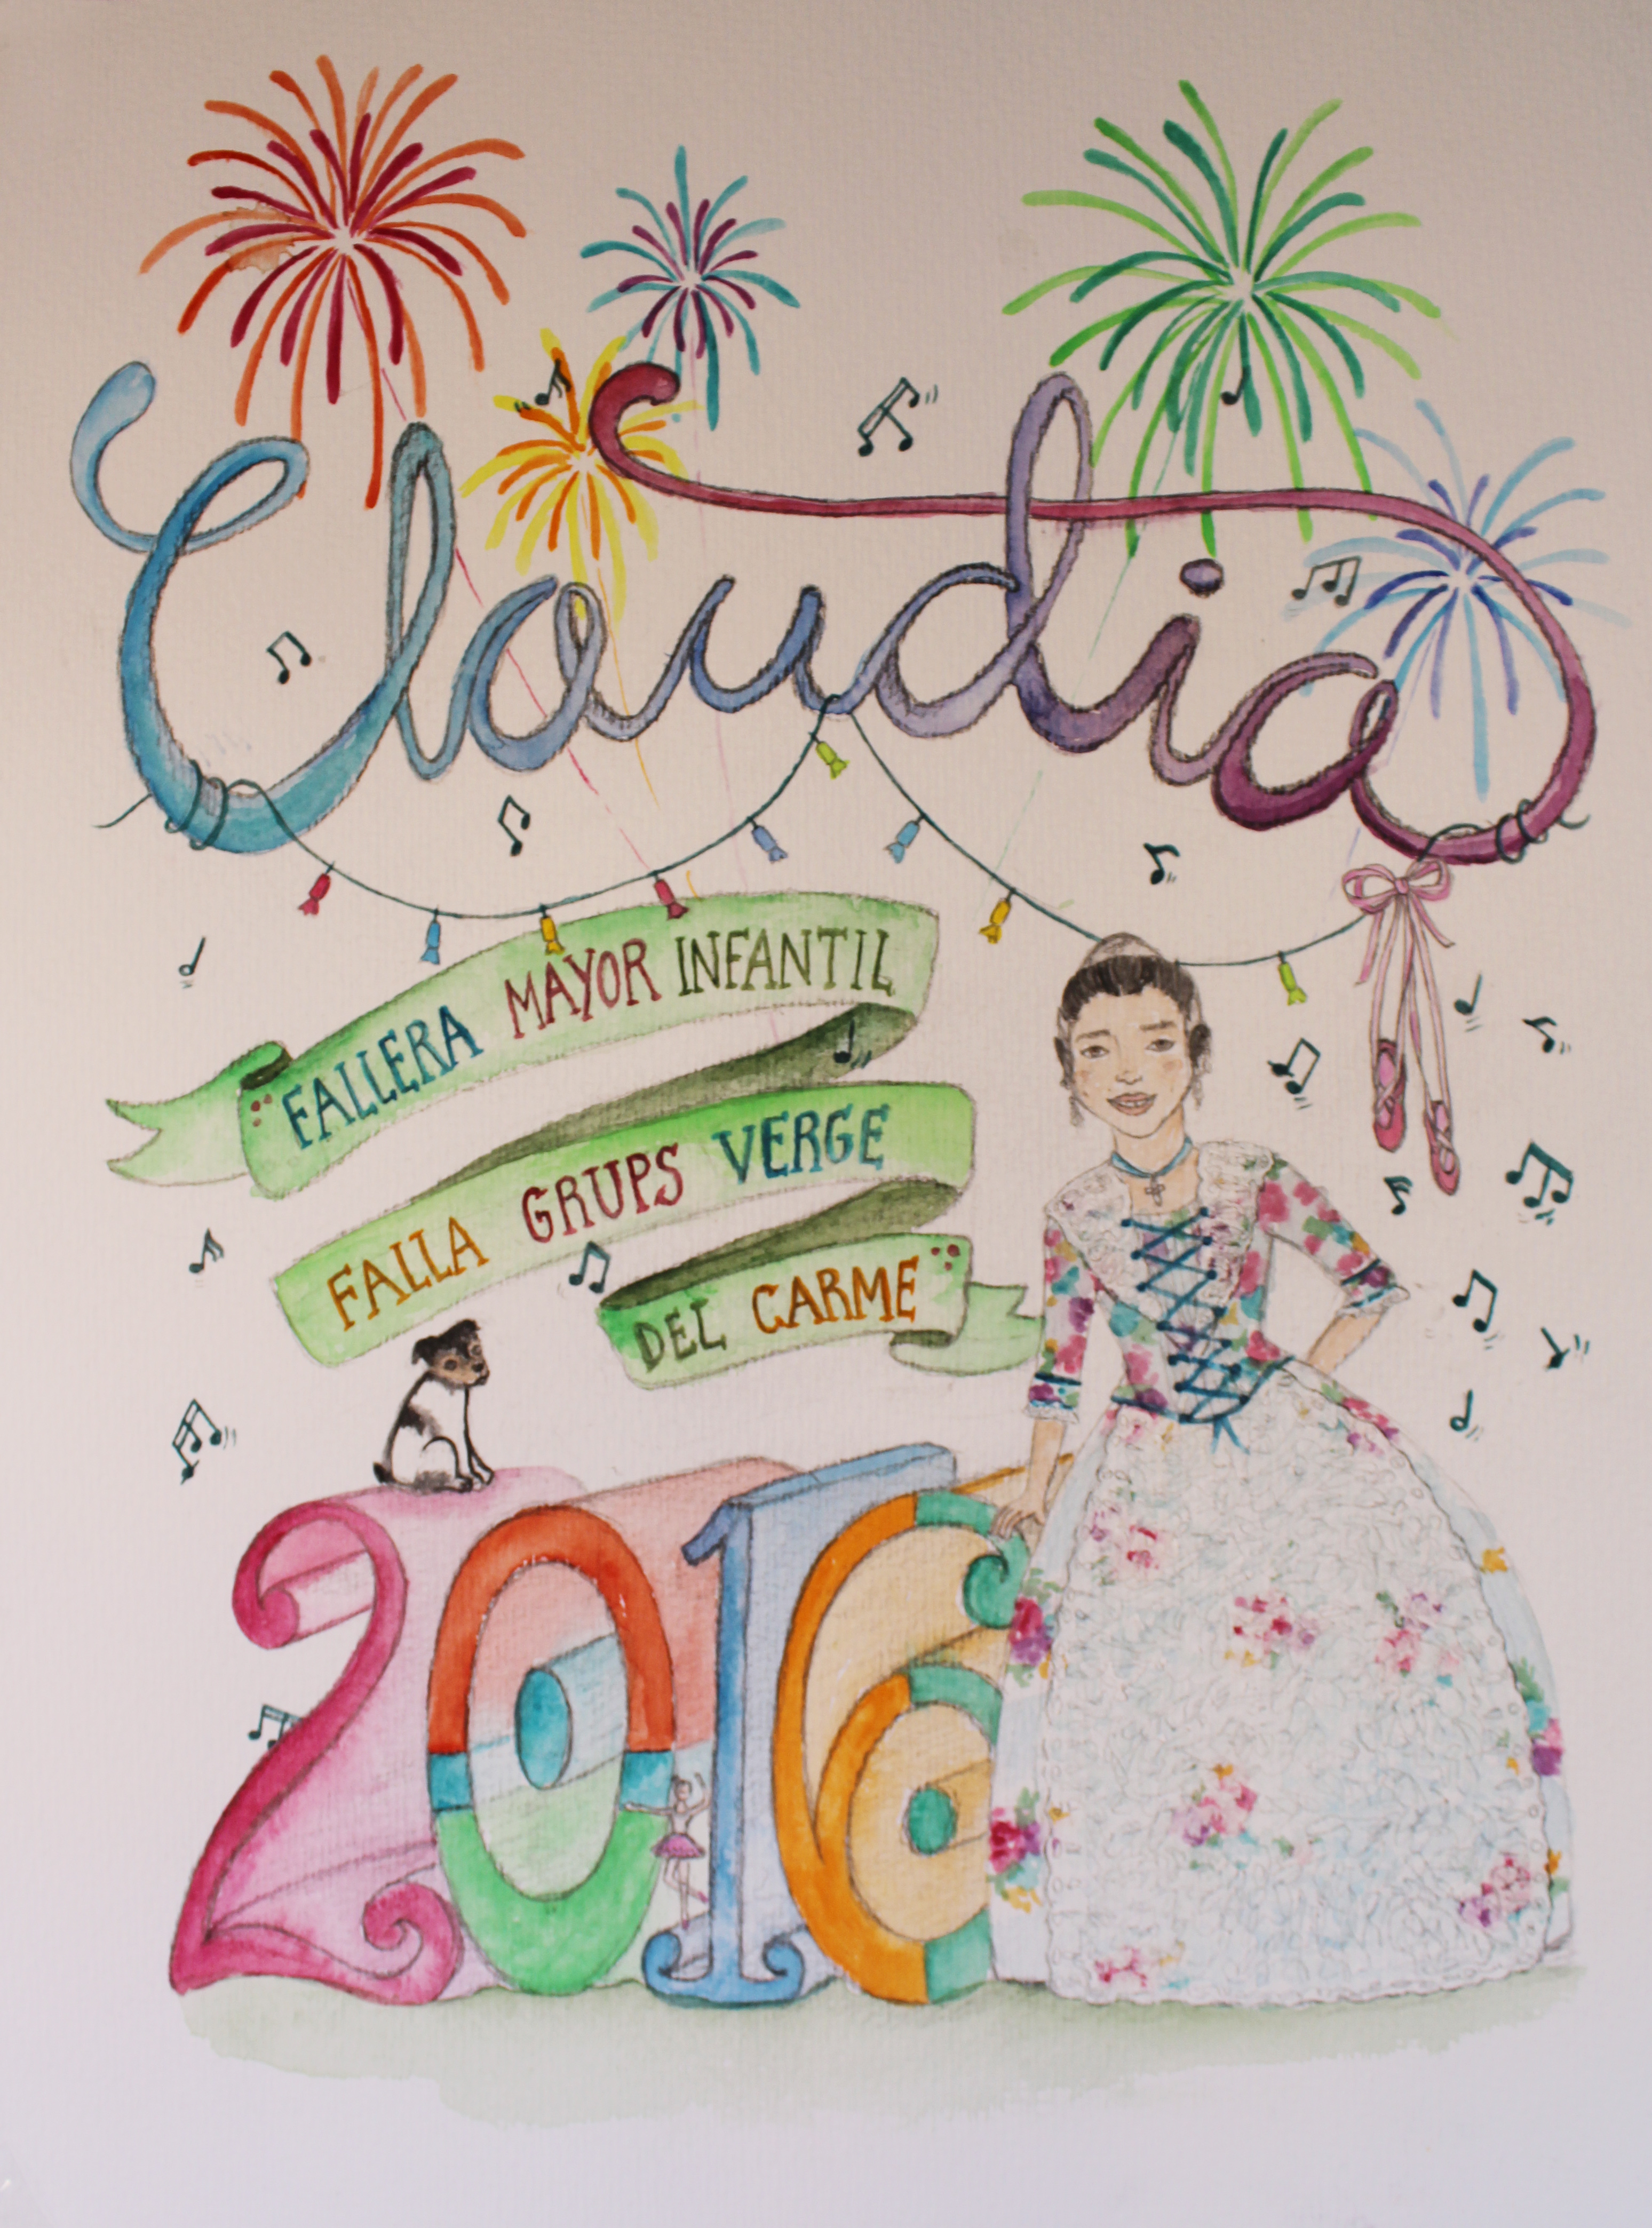 Claudia
FALLERA MAYOR INFANTIL
FALLA GRUPS VERGE
DEL CARME
2016